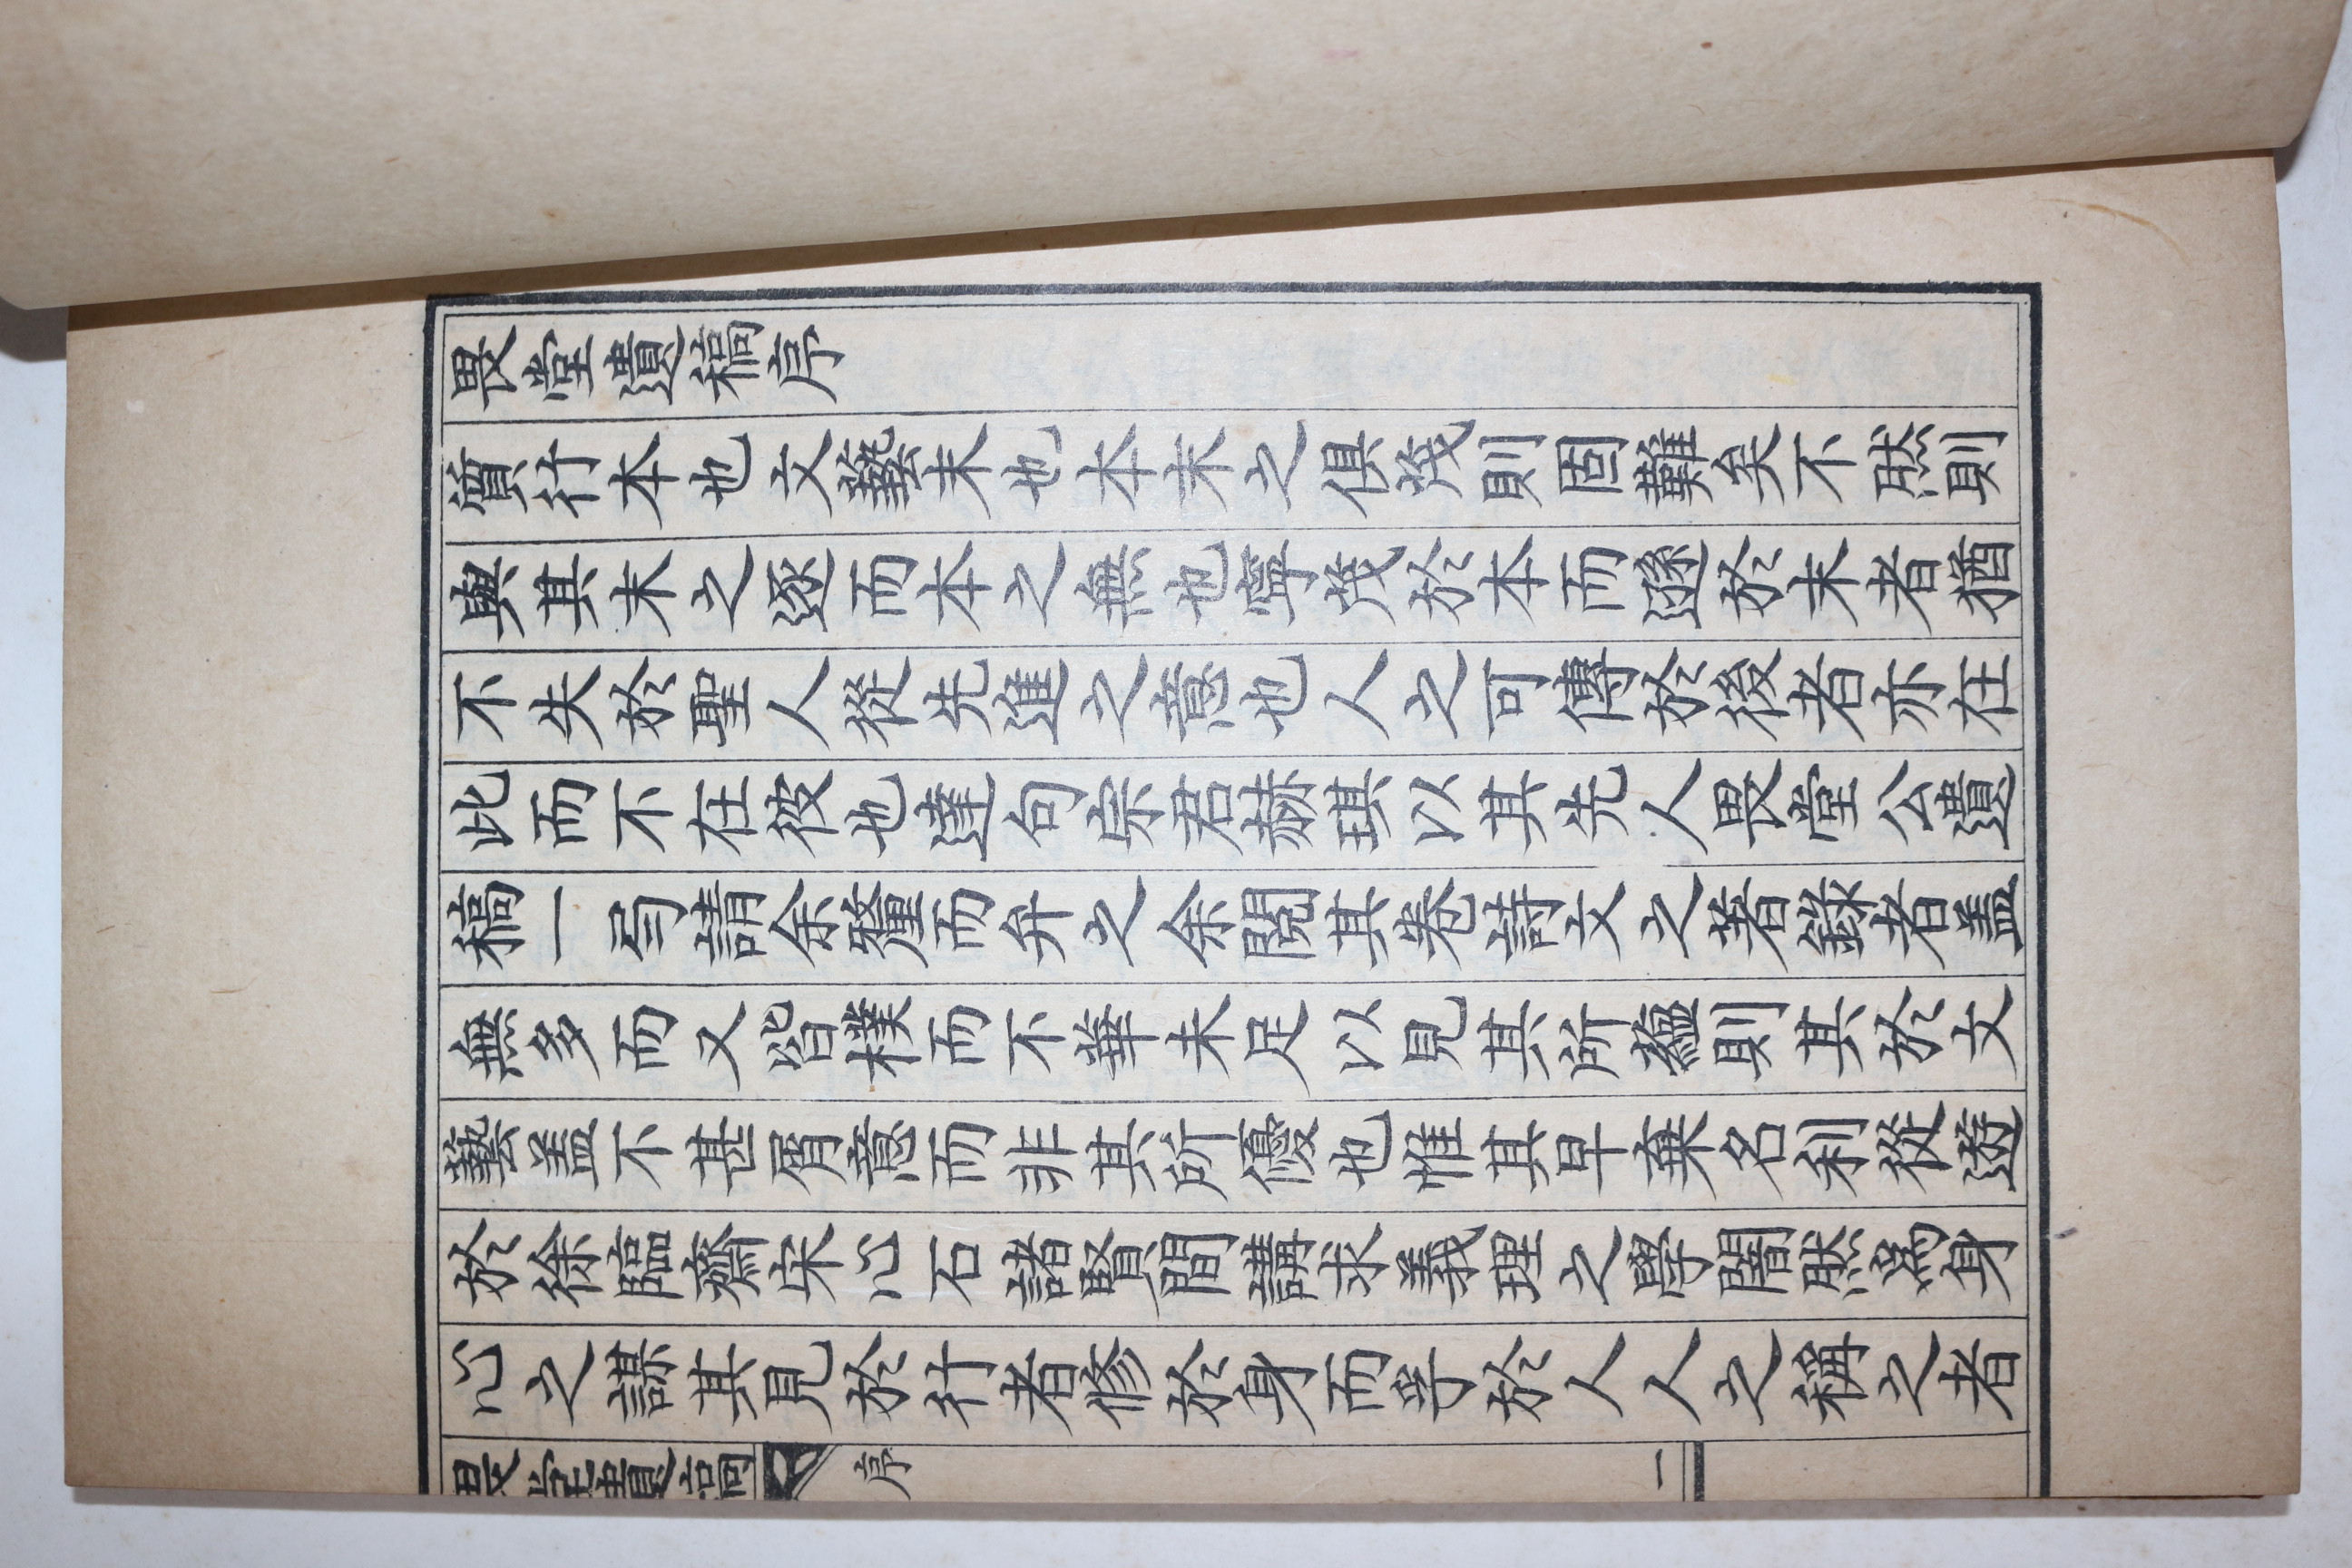 畏堂遺稿序
質行本也文藝末也本末之俱茂則固難矣不然則
與其末之逐而本之無也寧茂於本而遜於末者猶
不失於聖人從先進之意也人之可傳於後者亦在
此而不在彼也達句宗君赫琪以其先人畏堂公遺
稿一弓請余釐而弁之余閱其卷詩文之著錄者盖
無多而又皆樸而不華未足以見其所蘊則其於文
藝盖不甚屑意而非其所優也惟其早棄名利從遊
於徐臨齋宋心石諸賢間講求義理之學闇然爲身
心之謀其見於行者修於身而孚於人人之稱之者
畏堂遺稿 序 一